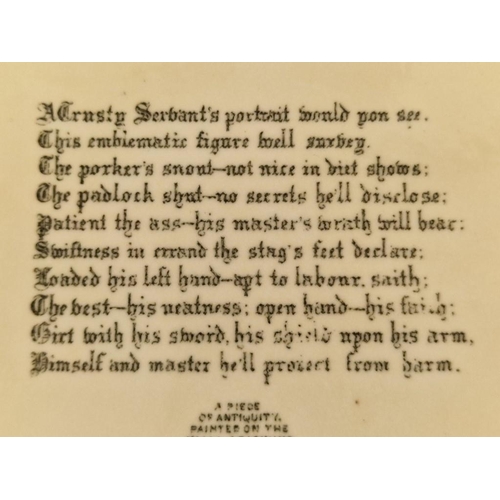 A Trusty Servant's portrait would you see,
This emblematic figure well survey.
The porker's snout—not nice in diet shows;
The padlock shut—no secrets he'll disclose;
Patient the ass—his master's wrath will bear;
Swiftness in errand the stag's feet declare;
Loaded his left hand—apt to labour, saith;
The vest—his neatness; open hand—his faith;
Girt with his sword, his shield upon his arm,
Himself and master he'll protect from harm.
A PIECE
OF ANTIQUITY,
PAINTED ON THE